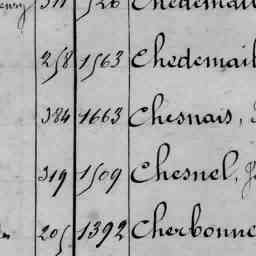 311 1526 Chedemail
258 1563 Chedemail
384 1663 Chesnais,
319 1509 Chesnel,
205 1392 Cherbonne